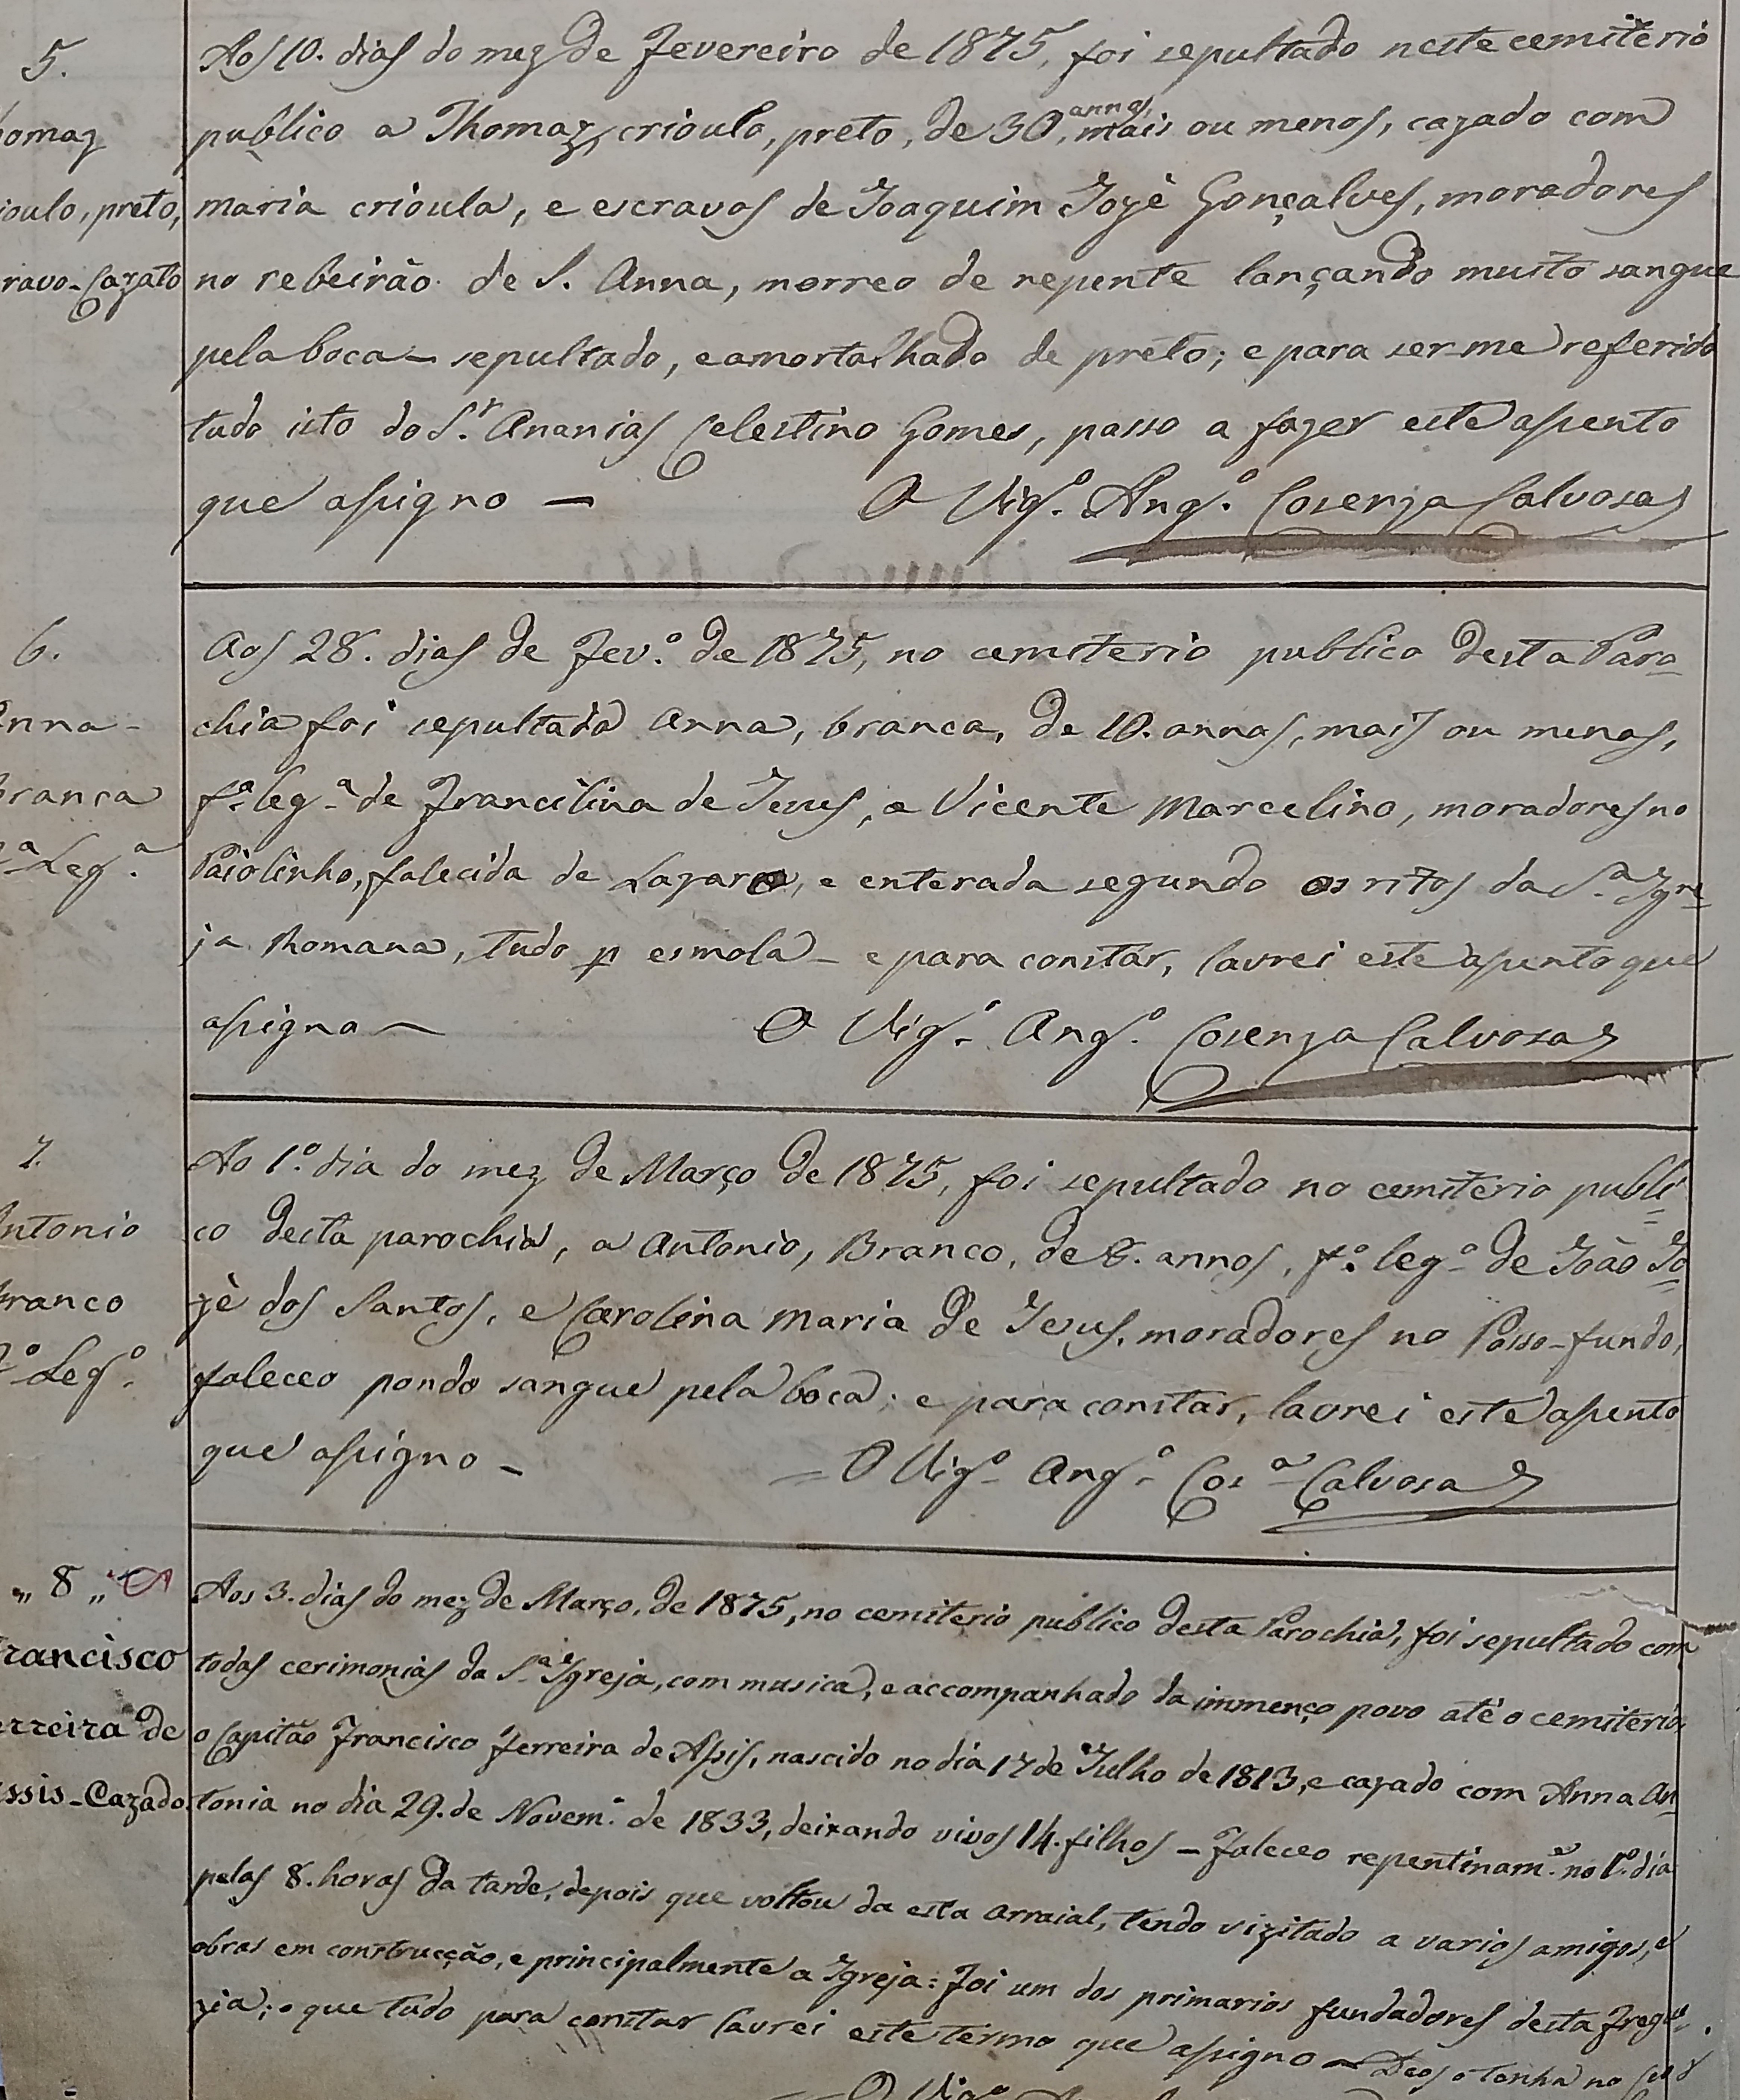 5.
Aos 10. dias do mez de Fevereiro de 1875, foi sepultado neste cemitèrio
omaz
publico a Thomaz, crioulo, preto, de 30, annos, mais ou menos, cazado com
ioulo, preto,
maria crioula, e escravos de Joaquim Jozè Gonçalves, moradores
ravo-Cazato
no rebeirão de S. Anna, morreo de repente lançando muito sangue
pela boca - sepultado, e amortalhado de preto; e para ser-me referido
tudo isto do S.r Ananias Celestino Gomes, passo a fazer este assento
que assigno —
O Vig.o Ang.o Cosenza Calvosa
6.
Aos 28. dias de Fev.o de 1875, no cemiterio publico desta Paro=
nna -
chia foi sepultada Anna, branca, de 10. annos, mais ou menos,
ranca
f.a leg.a de Francilina de Jesus, e Vicente Marcelino, moradores no
a Leg.a
Paiolinho, falecida de Lazaro, e enterada segundo os ritos da S.a Igre=
ja Romana, tudo p esmola - e para constar, lavrei este assento que
assigno —
O Vig.o Ang.o Cosenza Calvosa
7.
Ao 1.o dia do mez de Março de 1875, foi sepultado no cemitèrio publi=
ntonio
co desta parochia, a Antonio, Branco, de 6. annos, f.o leg.o de João Jo=
ranco
zè dos Santos, e Carolina Maria de Jesus, moradores no Passo-fundo,
o Leg.o
faleceo pondo sangue pela boca; e para constar, lavrei este assento
que assigno -
= O Vig.o Ang.o Cos.a Calvosa
„ 8 „
Aos 3. dias do mez de Março, de 1875, no cemiterio publico desta Parochia, foi sepultado com
rancisco
todas cerimonias da S.a Igreja, com musica, e accompanhado da immenço povo atè o cemitèrio,
erreira de
o Capitão Francisco Ferreira de Assis, nascido no dia 17 de Julho de 1813, e cazado com Anna An=
ssis-Cazado.
tonia no dia 29. de Novem.o de 1833, deixando vivos 14. filhos - Faleceo repentinam.e no 1.o dia
pelas 8. horas da tarde, depois que voltou da esta Arraial, tendo vizitado a varios amigos, e
obras em construcção, e principalmente a Igreja: Foi um dos primarios fundadores desta Fregu=
zia; o que tudo para constar lavrei este termo que assigno — Deos o tenha no
= O Vig.o